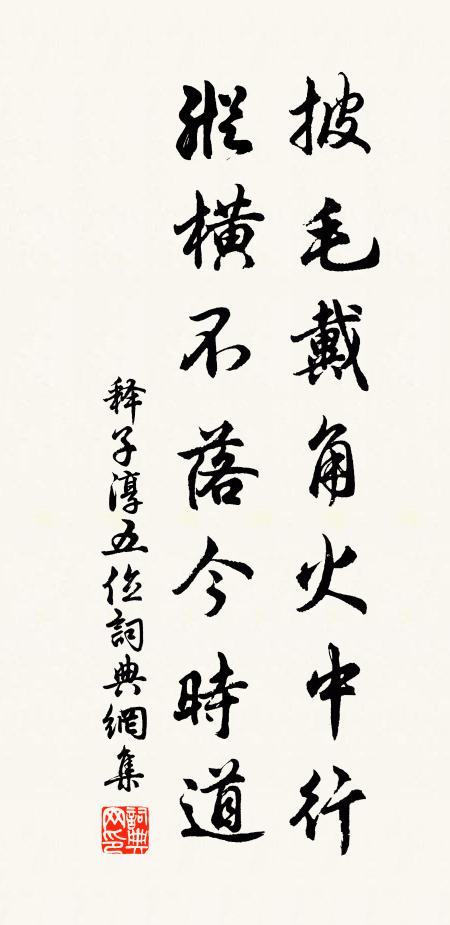 披毛戴角火中行
縱橫不落今時道
释子淳五位詞典網集
詞典網印